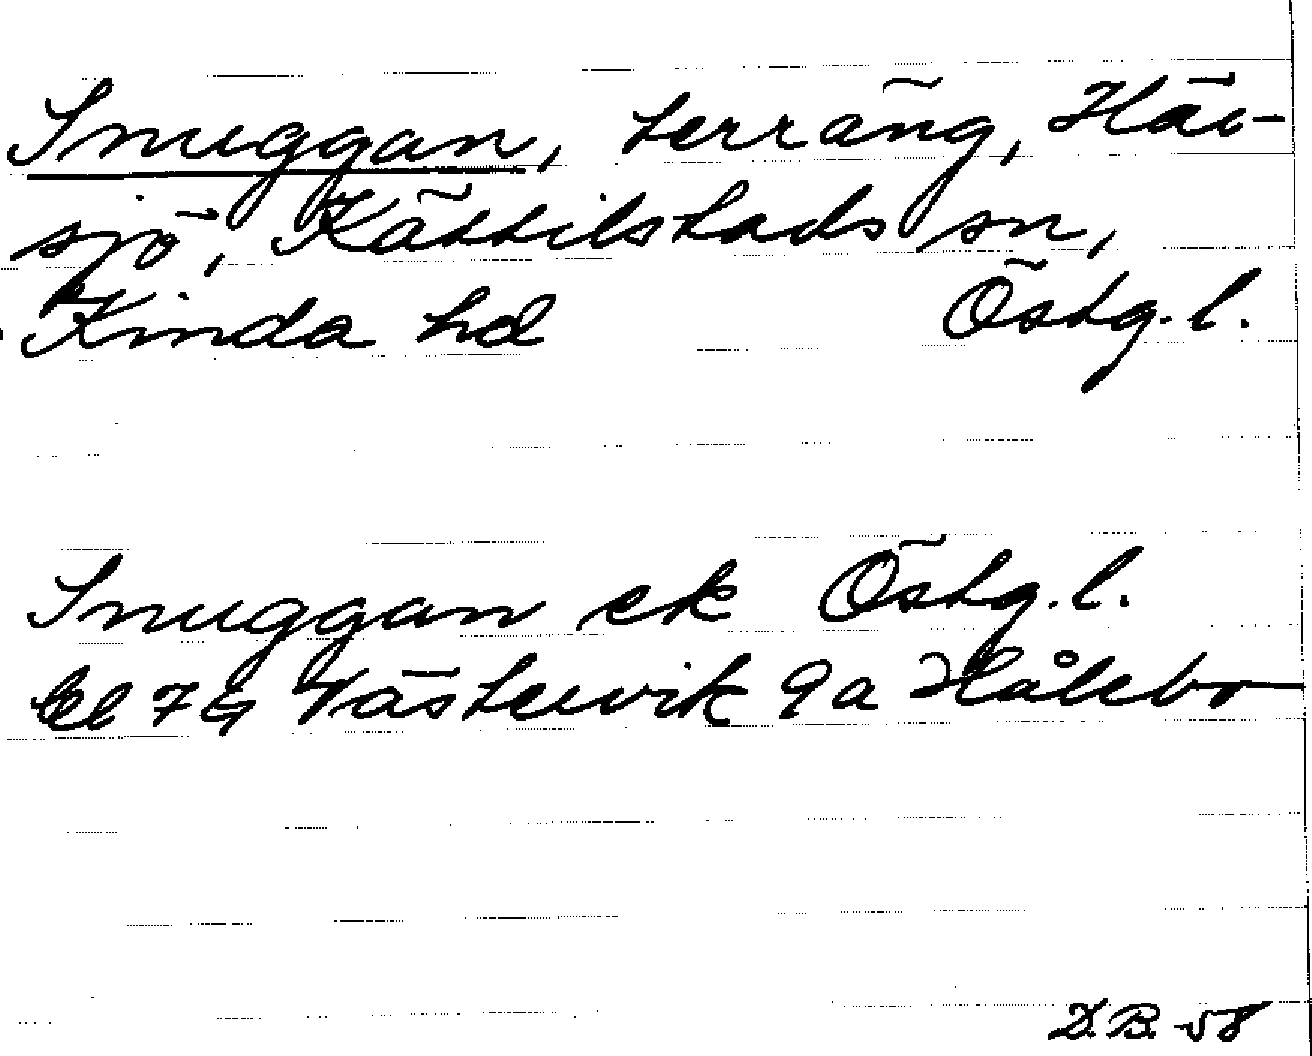 Snuggan, terräng, Häv-
sjö, Kättilstads sn,
Kinda hd Östg. l.
Snuggan ek Östg. l.
bl 7G Västervik 9a Hålebo
D.B. -58